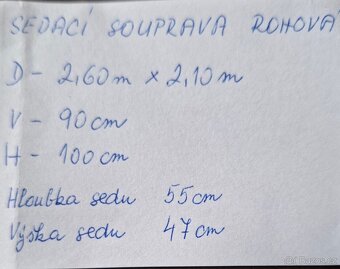 SEDACÍ SOUPRAVA ROHOVÁ
D - 2,60m x 2,10m
V - 90cm
H - 100cm
Hloubka sedu 55cm
Výska sedu 47cm
Bazos.cz